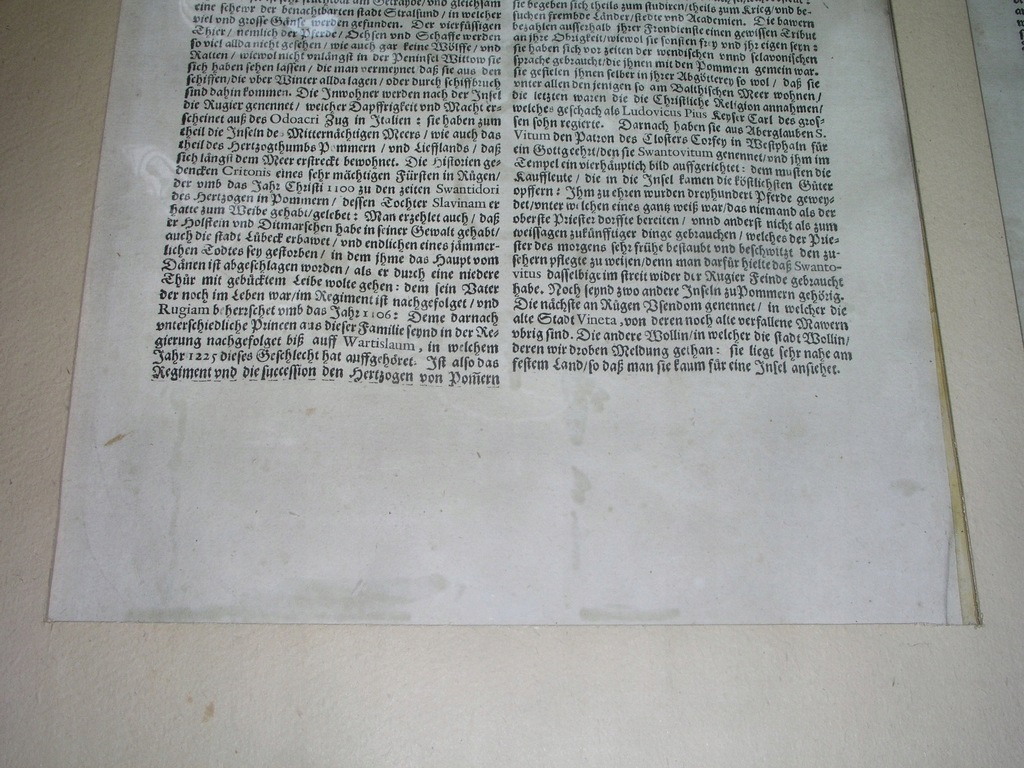 eine schewr der benachtbarten stadt Stralsund / in welcher
viel vnd grosse Gänse werden gefunden. Der vierfüssigen
Thier / nemlich der Pferde / Ochsen vnd Schaffe werden
so viel allda nicht gesehen / wie auch gar keine Wölffe / vnd
Ratten / wiewol nicht vnlängst in der Peninsel Wittow sie
sich haben sehen lassen / die man vermeynet daß sie aus den
schiffen / die vber Winter allda lagen / oder durch schiffbruch
sind dahin kommen. Die Inwohner werden nach der Insel
die Rugier genennet / welcher Dapffrigkeit vnd Macht er-
scheinet auß des Odoacri Zug in Italien : sie haben zum
theil die Inseln des Mitternächtigen Meers / wie auch das
theil des Hertzogthumbs Pommern / vnd Liefflands / daß
sich längst dem Meer erstreckt bewohnet. Die Historien ge-
dencken Critonis eines sehr mächtigen Fürsten in Rügen /
der vmb das Jahr Christi 1100 zu den zeiten Swantidori
des Hertzogen in Pommern / dessen Tochter Slavinam er
hatte zum Weibe gehabt / gelebet : Man erzehlet auch / daß
er Holstein vnd Ditmarschen habe in seiner Gewalt gehabt /
auch die stadt Lübeck erbawet / vnd endlichen eines jämmer-
lichen Todtes sey gestorben / in dem ihme das Haupt vom
Dänen ist abgeschlagen worden / als er durch eine niedere
Thür mit gebücktem Leibe wolte gehen : dem sein Vater
der noch im Leben war / im Regiment ist nachgefolget / vnd
Rugiam beherrschet vmb das Jahr 1106 : Deme darnach
vnterschiedliche Princen aus dieser Familie seynd in der Re-
gierung nachgefolget biß auff Wartislaum, in welchem
Jahr 1225 dieses Geschlecht hat auffgehöret. Ist also das
Regiment vnd die succession den Hertzogen von Pom̄ern
sie begeben sich theils zum studiren / theils zum Krieg / vnd be-
suchen frembde Länder / stedte vnd Academien. Die bawern
bezahlen ausserhalb ihrer Frondienste einen gewissen Tribut
an ihre Obrigkeit / wiewol sie sonsten frey vnd ihr eigen seyn :
sie haben sich vor zeiten der wendischen vnnd sclavonischen
sprache gebraucht / die ihnen mit den Pommern gemein war.
sie gefielen ihnen selber in ihrer Abgötterey so wol / daß sie
vnter allen den jenigen so am Balthischen Meer wohnen /
die letzten waren die die Christliche Religion annahmen /
welches geschach als Ludovicus Pius Keyser Carl des gros-
sen sohn regierte. Darnach haben sie aus Aberglauben S.
Vitum den Patron des Closters Corfey in Westphaln für
ein Gott geehrt / den sie Swantovitum genennet / vnd ihm im
Tempel ein vierhäuptich bild auffgerichtet : dem musten die
Kauffleute / die in die Insel kamen die köstlichsten Güter
opffern : Ihm zu ehren wurden dreyhundert Pferde gewey-
det / vnter welchen eines gantz weiß war / das niemand als der
oberste Priester dorffte bereiten / vnnd anderst nicht als zum
weissagen zukünfftiger dinge gebrauchen / welches der Prie-
ster des morgens sehr frühe bestaubt vnd beschwitzt den zu-
sehern pflegte zu weisen / denn man darfür hielte daß Swanto-
vitus dasselbige im streit wider der Rugier Feinde gebraucht
habe. Noch seynd zwo andere Inseln zu Pommern gehörig.
Die nächste an Rügen Vsendom genennet / in welcher die
alte Stadt Vincta, von deren noch alte verfallene Mawern
vbrig sind. Die andere Wollin / in welcher die stadt Wollin /
deren wir droben Meldung gethan : sie liegt sehr nahe am
festem Land / so daß man sie kaum für eine Insel ansiehet.